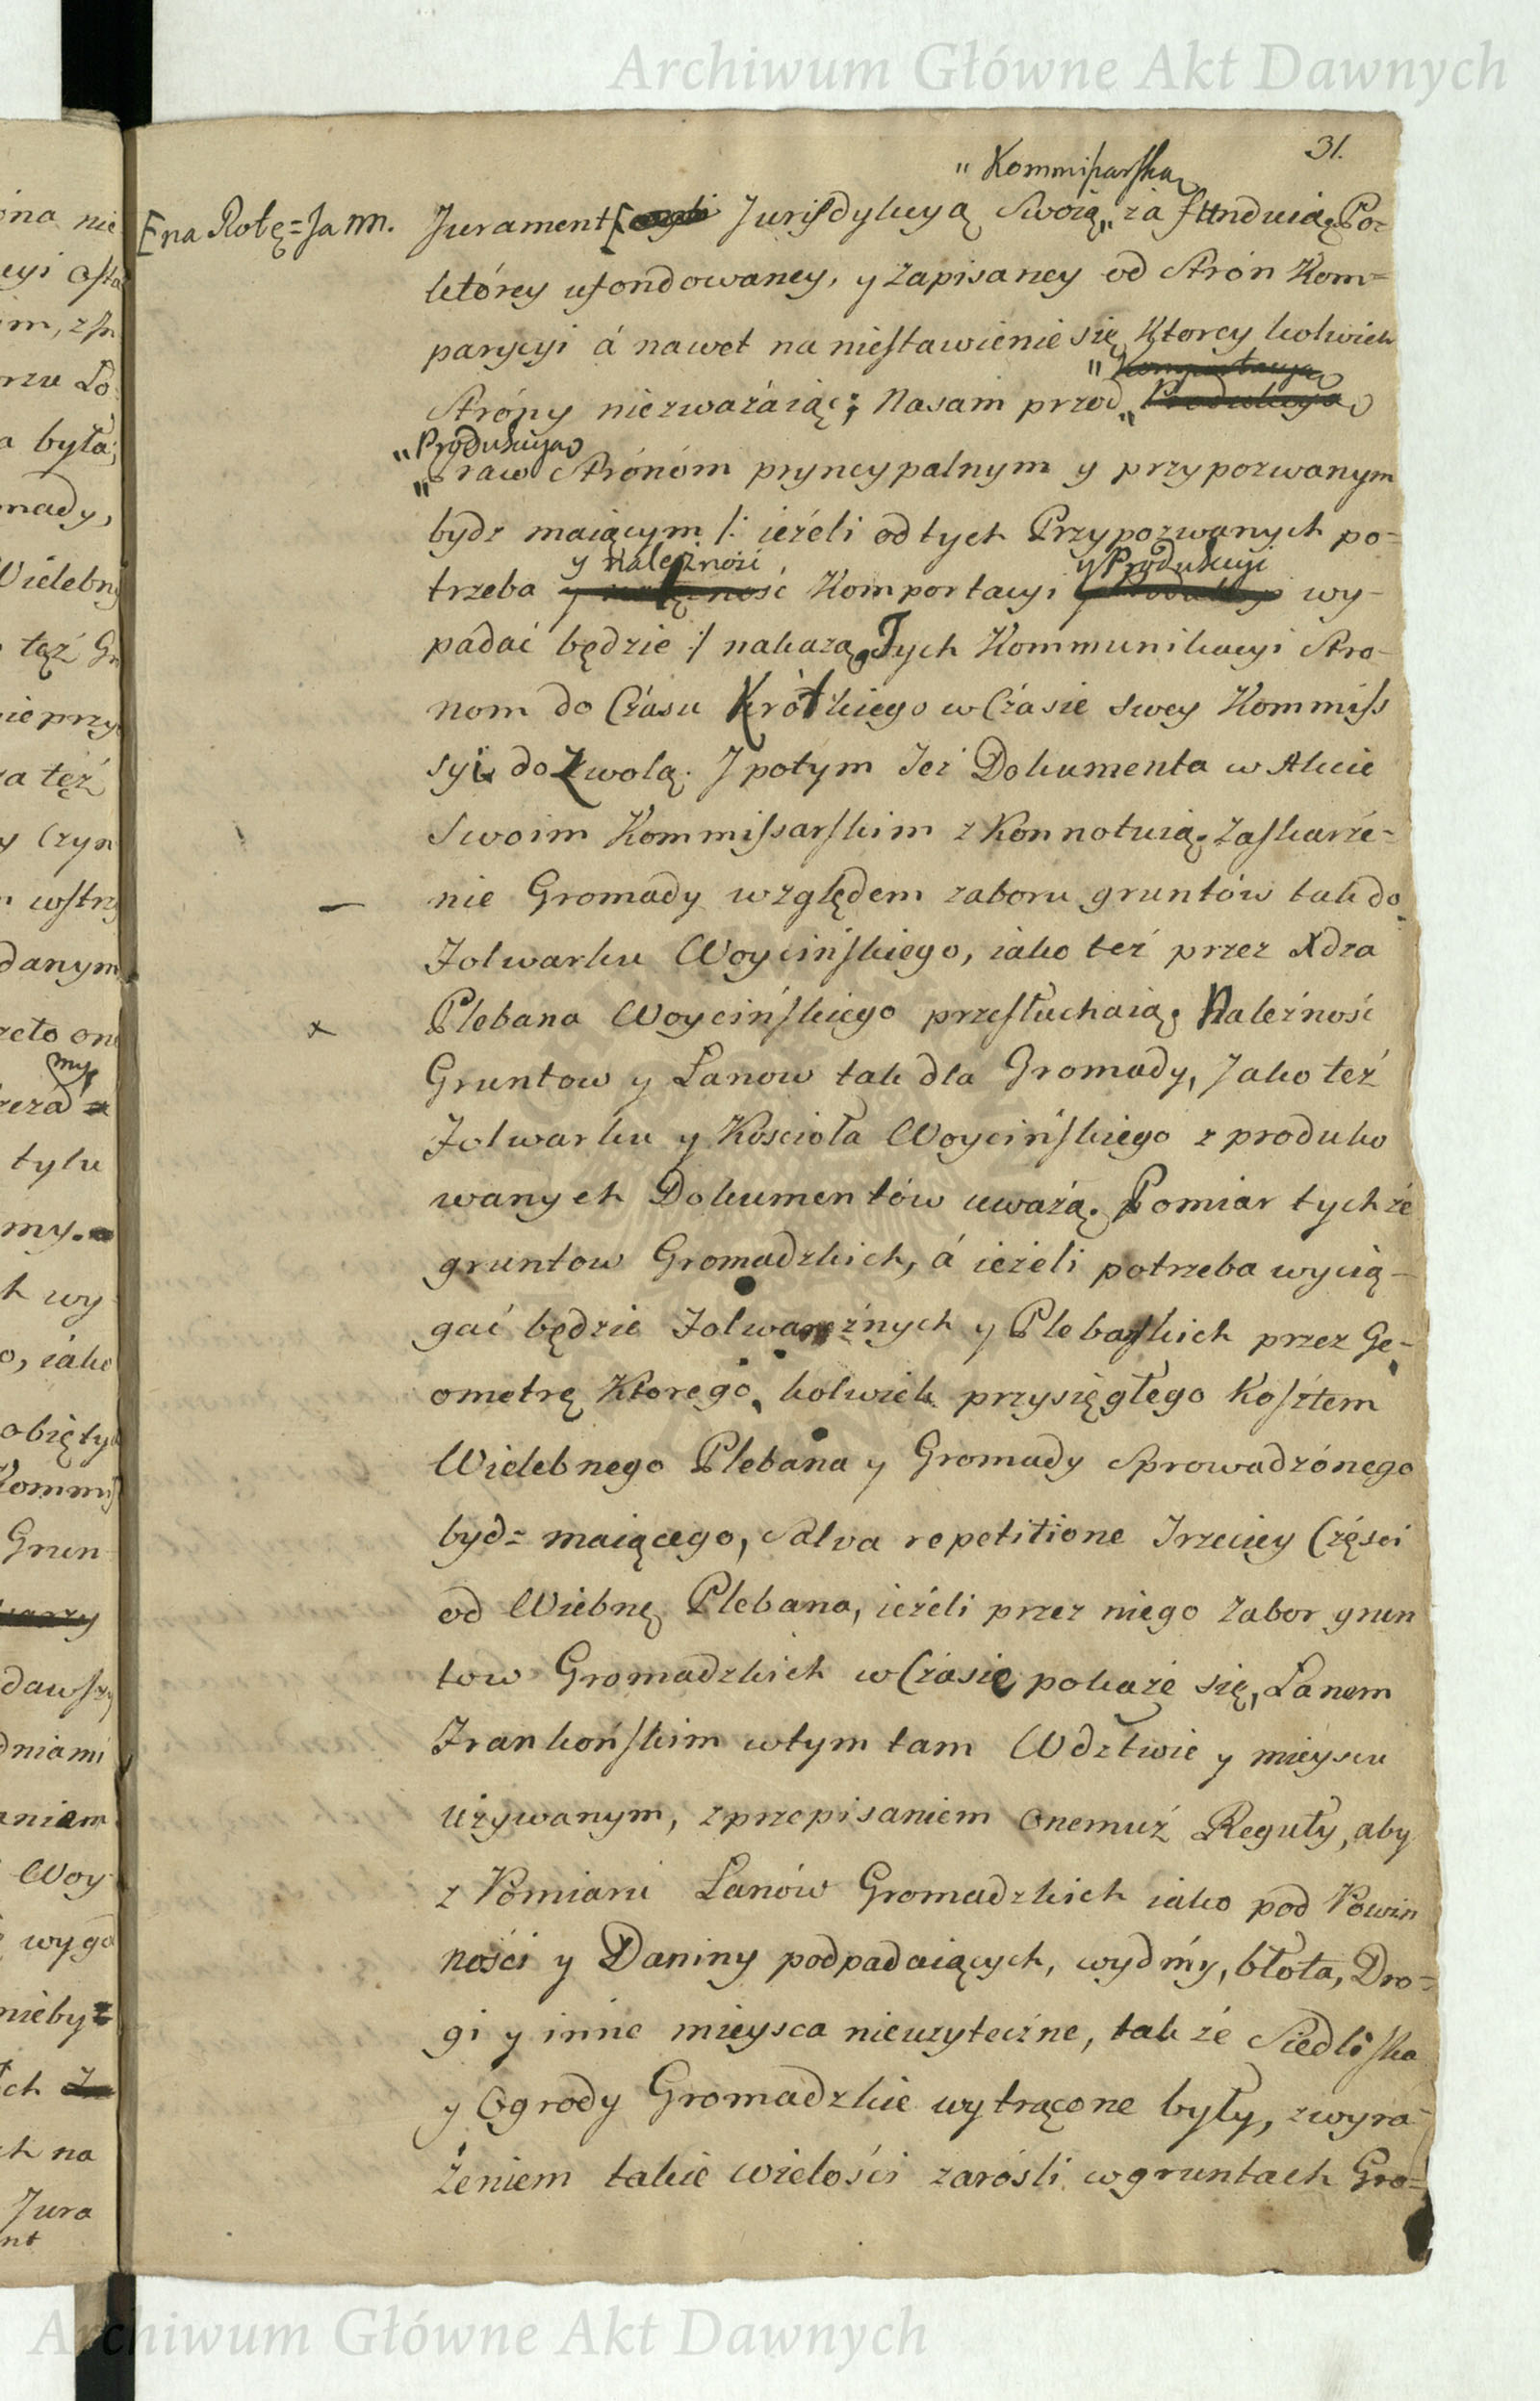 Archiwum Główne Akt Dawnych
31.
" Kommissarską
[na Rotę = Ja NN.
Jurament [ Jurisdykcyą Swoią " za fundują. Po
którey ufondowaney, y zapisaney od Strón Kom=
parycyi á nawet na niestawienie się Ktorey kolwiek
" Komportacyą
Stróny niezważáiąc; Nasam przod " Produkcyą
" Produkcyą
" Praw Strónóm pryncypalnym y przypozwanym
bydz maiącym /: ieźeli od tych Przypozwanych po=
y Należność y Produkcyi
trzeba Komportacyi wy-
padać będzie :/ nakazą. Tych Kommunikacyi Stro-
nom do Czásu Krótkiego w Czasie swey Kommiss
syi dozwolą. J potym Też Dokumenta w Akcie
Swoim Kommissarskim z Konnotuią. Zaskarże=
nie Gromady względem zaboru gruntów tak do
Folwarku Woycińskiego, iako też przez Xdza
x
Plebana Woycińskiego przesłuchaią. Należność
Gruntow y Lanow tak dla Gromady, Jako też
Folwarku y Kościoła Woycińskiego z produko
wanych Dokumentów uważą. Pomiar tychże
gruntow Gromadzkich, á ieżeli potrzeba wycią-
gać będzie Folwarcznych y Plebańskich przez Ge-
ometrę Ktorego kolwiek przysięgłego Kosztem
Wielebnego Plebana y Gromady Sprowadzónego
bydz maiącego, Salva repetitione Trzeciey Części
od Wiebnę Plebana, ieżeli przez niego Zabor grun
tow Gromadzkich w Czasie pokaże się, Lanem
Frankońskim w tym tam Wdztwie y mieyscu
używanym, z przepisaniem Onemuż Reguły, aby
z Pomiaru Lanów Gromadzkich iako pod Powin
ności y Daniny podpadaiących, wydmy, błota, Dro=
gi y inne mieysca nieuzyteczne, tak że Siedliska
y Ogrody Gromadzkie wytrącone były, z wyra-
żeniem takie wielości zarośli w gruntach Gro=
Archiwum Główne Akt Dawnych